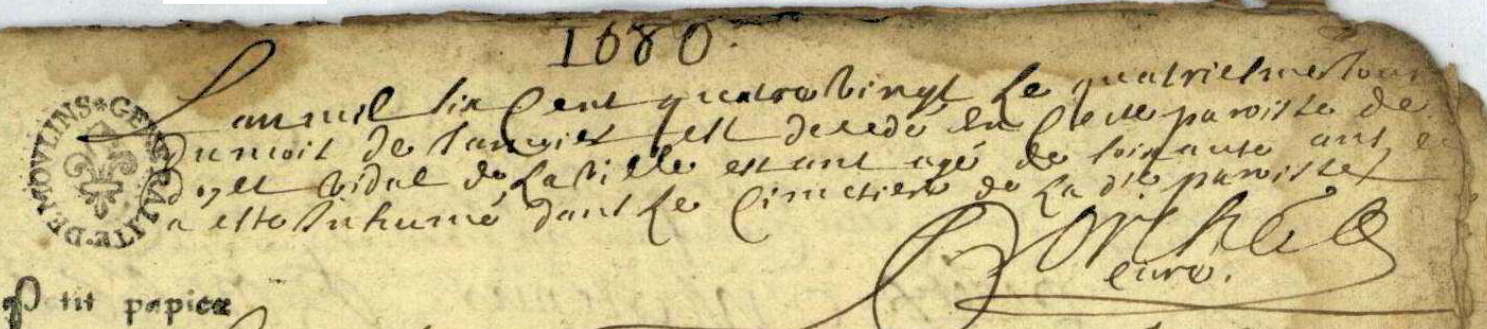 1680
Lan mil six Cent quatre vingt Le quatriesme Jour
du mois de Janvier est decedé En Cette paroisse de
doyet vidal de Laville estant agé de soixante ans et
a esté Inhumé dans Le Cimetiere de La dte paroisse
curé.
GENERALITE DE MOVLINS
P tit papier